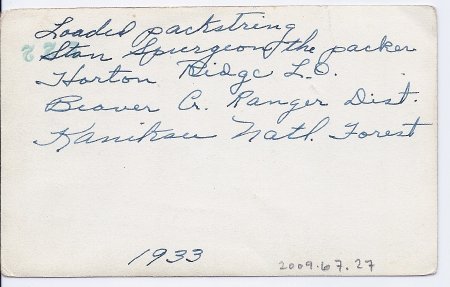 Loaded packstring
22
Stan Spurgeon, the packer
Horton Ridge L.O.
Beaver Cr. Ranger Dist.
Kaniksu Natl. Forest
1933
2009.67.27